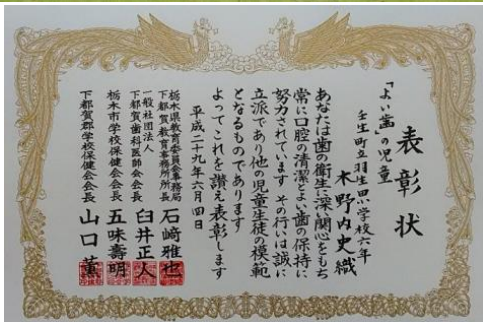 表彰状
「よい歯」の児童
壬生町立羽生田小学校六年
木野内史織
あなたは歯の衛生に深い関心をもち
常に口腔の清潔とよい歯の保持に
努力されています その行いは誠に
立派であり他の児童生徒の模範
となるものであります
よってこれを讃え表彰します
平成二十九年六月四日
栃木県教育委員会事務局
下都賀教育事務所所長 石﨑雅也
一般社団法人
下都賀歯科医師会会長 臼井正人
栃木市学校保健会会長 五味壽明
下都賀郡学校保健会会長 山口薫